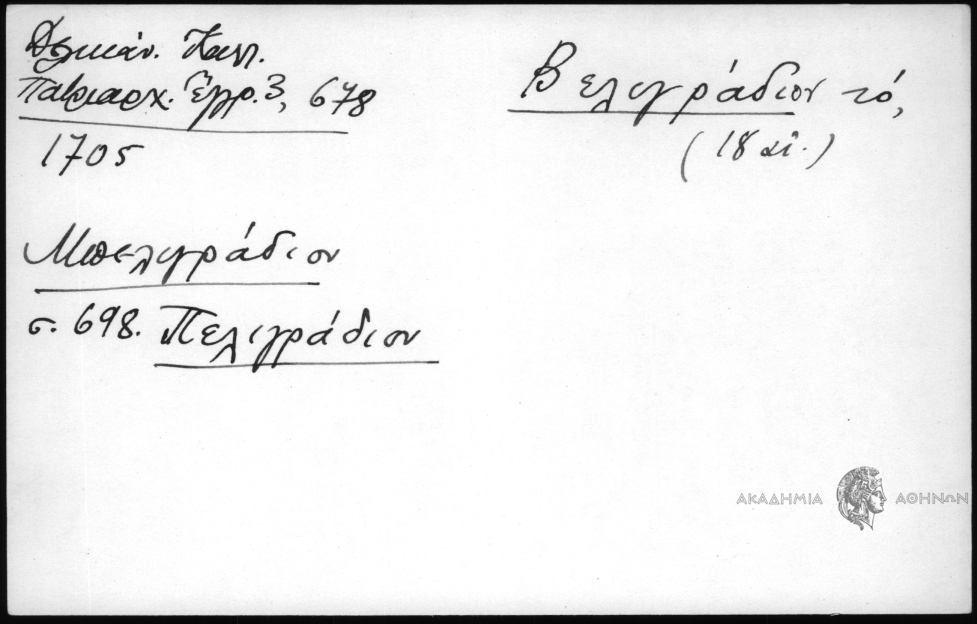 Δελικάν. Καλλ.
Πατριαρχ. Ἔγγρ. 3, 678
1705
Βελιγράδιον τό,
(18 αἰ.)
Μπελιγράδιον
σ. 698. Πελιγράδιον
ΑΚΑΔΗΜΙΑ ΑΘΗΝΩΝ